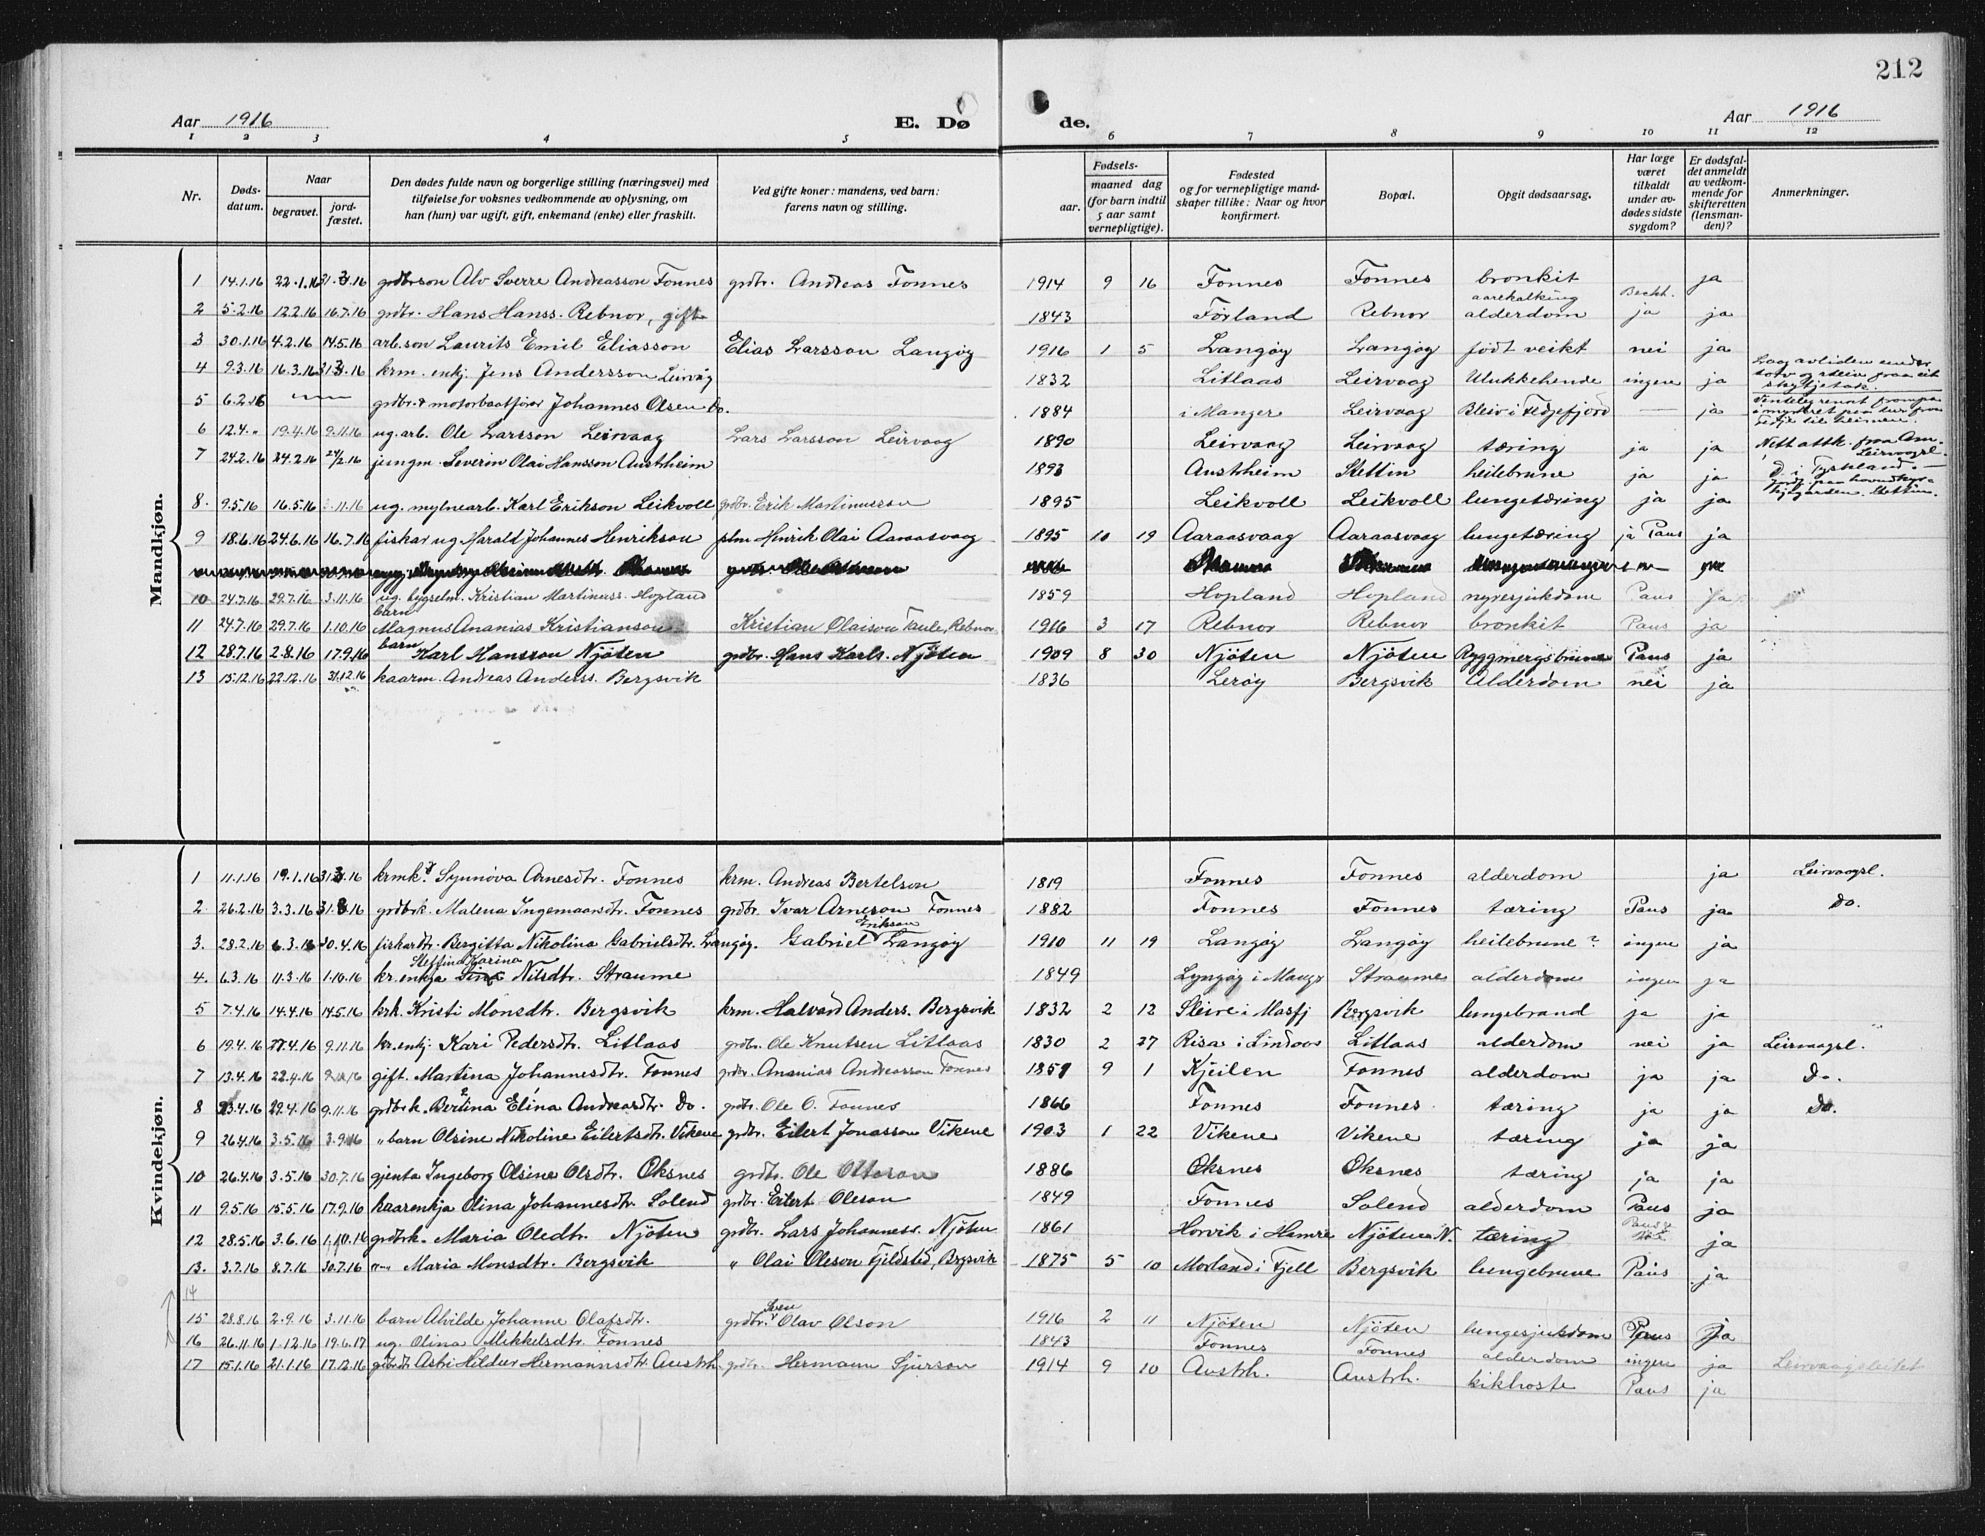 212
Aar 1916 E. Dø de. Aar 1916
1 2 3 4 5 6 7 8 9 10 11 12
Nr. Døds-datum. Naar begravet. jord-fæstet. Den dødes fulde navn og borgerlige stilling (næringsvei) med tilføielse for voksnes vedkommende av oplysning, om han (hun) var ugift, gift, enkemand (enke) eller fraskilt. Ved gifte koner: mandens, ved barn: farens navn og stilling. Fødsels- aar. maaned dag (for barn indtil 5 aar samt vernepligtige). Fødested og for vernepligtige mandskaper tillike: Naar og hvor konfirmert. Bopæl. Opgit dødsaarsag. Har læge været tilkaldt under avdødes sidste sygdom? Er dødsfaldet anmeldt av vedkommende for skifteretten (lensmanden)? Anmerkninger.
Mandkjøn.
1 14.1.16 22.1.16 31.3.16 grdbrson Alv Sverre Andreasson Fonnes grdbr. Andreas Fonnes 1914 9 16 Fonnes Fonnes bronkit ja
2 5.2.16 12.2.16 16.7.16 grdbr. Hans Hanss. Rebnor, gift 1843 Förland Rebnor aarekalking alderdom ja ja
3 30.1.16 4.2.16 14.5.16 arb.son Laurits Emil Eliasson Elias Larsson Langöy 1916 1 5 Langöy Langöy födt veikt nei ja
4 9.3.16 16.3.16 31.3.16 krm. enkj. Jens Andersson Leirvåg 1832 Litlaas Leirvaag Ulukkehende ingen ja
5 6.2.16 grdbr. & motorbaatförar Johannes Olsen Do. 1884 i Manger Leirvaag Bleiv i Fedjefjord — ja
6 12.4.„ 19.4.16 9.11.16 ug. arb. Ole Larsson Leirvaag Lars Larsson Leirvaag 1890 Leirvaag Leirvaag tæring ja ja
7 24.2.16 24.2.16 24/2.16 jungm. Severin Olai Hansson Austrheim 1893 Austrheim Stettin heilebrune ja ja D. i Tyskland.
8. 9.5.16 16.5.16 ug. mylnearb. Karl Erikson Leikvoll grdbr. Erik Martinusson 1895 Leikvoll Leikvoll lungetæring ja ja
9 18.6.16 24.6.16 16.7.16 fiskar ug Harald Johannes Henrikson plm Hinrik Olai Aaraasvaag 1895 10 19 Aaraasvaag Aaraasvaag lungetæring ja Paus ja
10 24.7.16 29.7.16 3.11.16 ug. bygselm. Kristian Martinuss. Hopland 1859 Hopland Hopland nyresjukdom Paus ja
11 24.7.16 29.7.16 1.10.16 barn Magnus Ananias Kristianson Kristian Olaison Taule, Rebnor 1916 3 17 Rebnor Rebnor bronkit Paus ja
12 28.7.16 2.8.16 17.9.16 barn Karl Hansson Njöten grdbr. Hans Karls. Njöten 1909 8 30 Njöten Njöten Ryggmergsbrune Paus ja
13 15.12.16 22.12.16 31.12.16 kaarm. Andreas Anderss. Bergsvik 1836 Leröy Bergsvik Alderdom nei ja
Kvindekjøn.
1 11.1.16 19.1.16 31.3.16 krmk. Synnöva Arnesdtr. Fonnes krm. Andreas Bertelson 1819 Fonnes Fonnes alderdom ja Leirvaagsl.
2. 26.2.16 3.3.16 31.3.16 grdbrk. Malena Ingemaarsdtr. Fonnes grdbr. Ivar Arneson Fonnes 1882 Fonnes Fonnes tæring Paus ja Do.
3. 28.2.16 6.3.16 30.4.16 fiskardtr. Bergitta Nikolina Gabrielsdtr. Langöy. Gabriel Erikson Langöy 1910 11 19 Langöy Langöy heilebrune? ingen ja
4. 6.3.16 11.3.16 1.10.16 kr. enkja Steffina Karina Nilsdtr. Straume 1849 Lyngöy i Mangr Straumes alderdom ingen ja
5 7.4.16 14.4.16 14.5.16 krk. Kristi Monsdtr. Bergsvik krm. Halvard Anders. Bergsvik 1832 2 12 Sleire i Masfj Bergsvik lungebrand ja ja
6 19.4.16 27.4.16 9.11.16 kr. enkj. Kari Pedersdtr. Litlaas grdbr. Ole Knutsen Litlaas 1830 2 27 Risa i Lindaas Litlaas alderdom nei ja Leirvaagsl.
7 13.4.16 22.4.16 gift. Martina Johannesdtr. Fonnes grdbr. Ananias Andreasson Fonnes 1857 9 1 Kjeilen Fonnes alderdom ja ja Do.
8 23.4.16 29.4.16 9.11.16 grdbrk. Bertina Elina Andreasdtr. Do. grdbr. Ole O. Fonnes 1866 Fonnes Fonnes tæring ja ja Do.
9 26.4.16 3.5.16 3.9.16 „ barn Olsine Nikoline Eilertsdtr. Vikene grdbr. Eilert Jonasson Vikene 1903 1 22 Vikene Vikene tæring ja ja
10 26.4.16 3.5.16 30.7.16 gjenta Ingeborg Olsine Olsdtr. Oksnes grdbr. Ole Otteson 1886 Oksnes Oksnes tæring ja ja
11 9.5.16 15.5.16 17.9.16 kaarenkja Olina Johannesdtr. Solend grdbr. Eilert Oleson 1849 Fonnes Solend alderdom Paus ja
12 28.5.16 3.6.16 1.10.16 grdbrk. Maria Olsdtr. Njöten grdbr. Lars Johanness. Njöten 1861 Horvik i Hamre Njöten N. tæring ja
13. 3.7.16 8.7.16 30.7.16 „ Maria Monsdtr. Bergsvik „ Olai Oleson Fjeldsted, Brgsvik 1875 5 10 Morland i Fjell Bergsvik lungebrune Paus ja
14
15 28.8.16 2.9.16 3.11.16 barn Alvilde Johanne Olafsdtr. grdbr. Sven Olav Olson 1916 2 11 Njöten Njöten lungesjukdom Paus ja
16 26.11.16 1.12.16 19.6.17 ug. Olina Mikkelsdtr. Fonnes 1843 Fonnes Fonnes alderdom ingen ja
17 15.1.16 21.1.16 17.12.16 grdbrdtr Astri Hildur Hermannsdtr. Austrh. grdbr. Hermann Sjurson 1914 9 10 Austrh. Austrh. kikhoste Paus ja Leirvaagsleitet